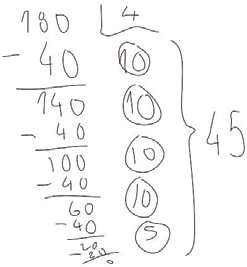 180 4
- 40 10
140 10
- 40
100 10
- 40
60 10
- 40
20 5
- 20
0
45